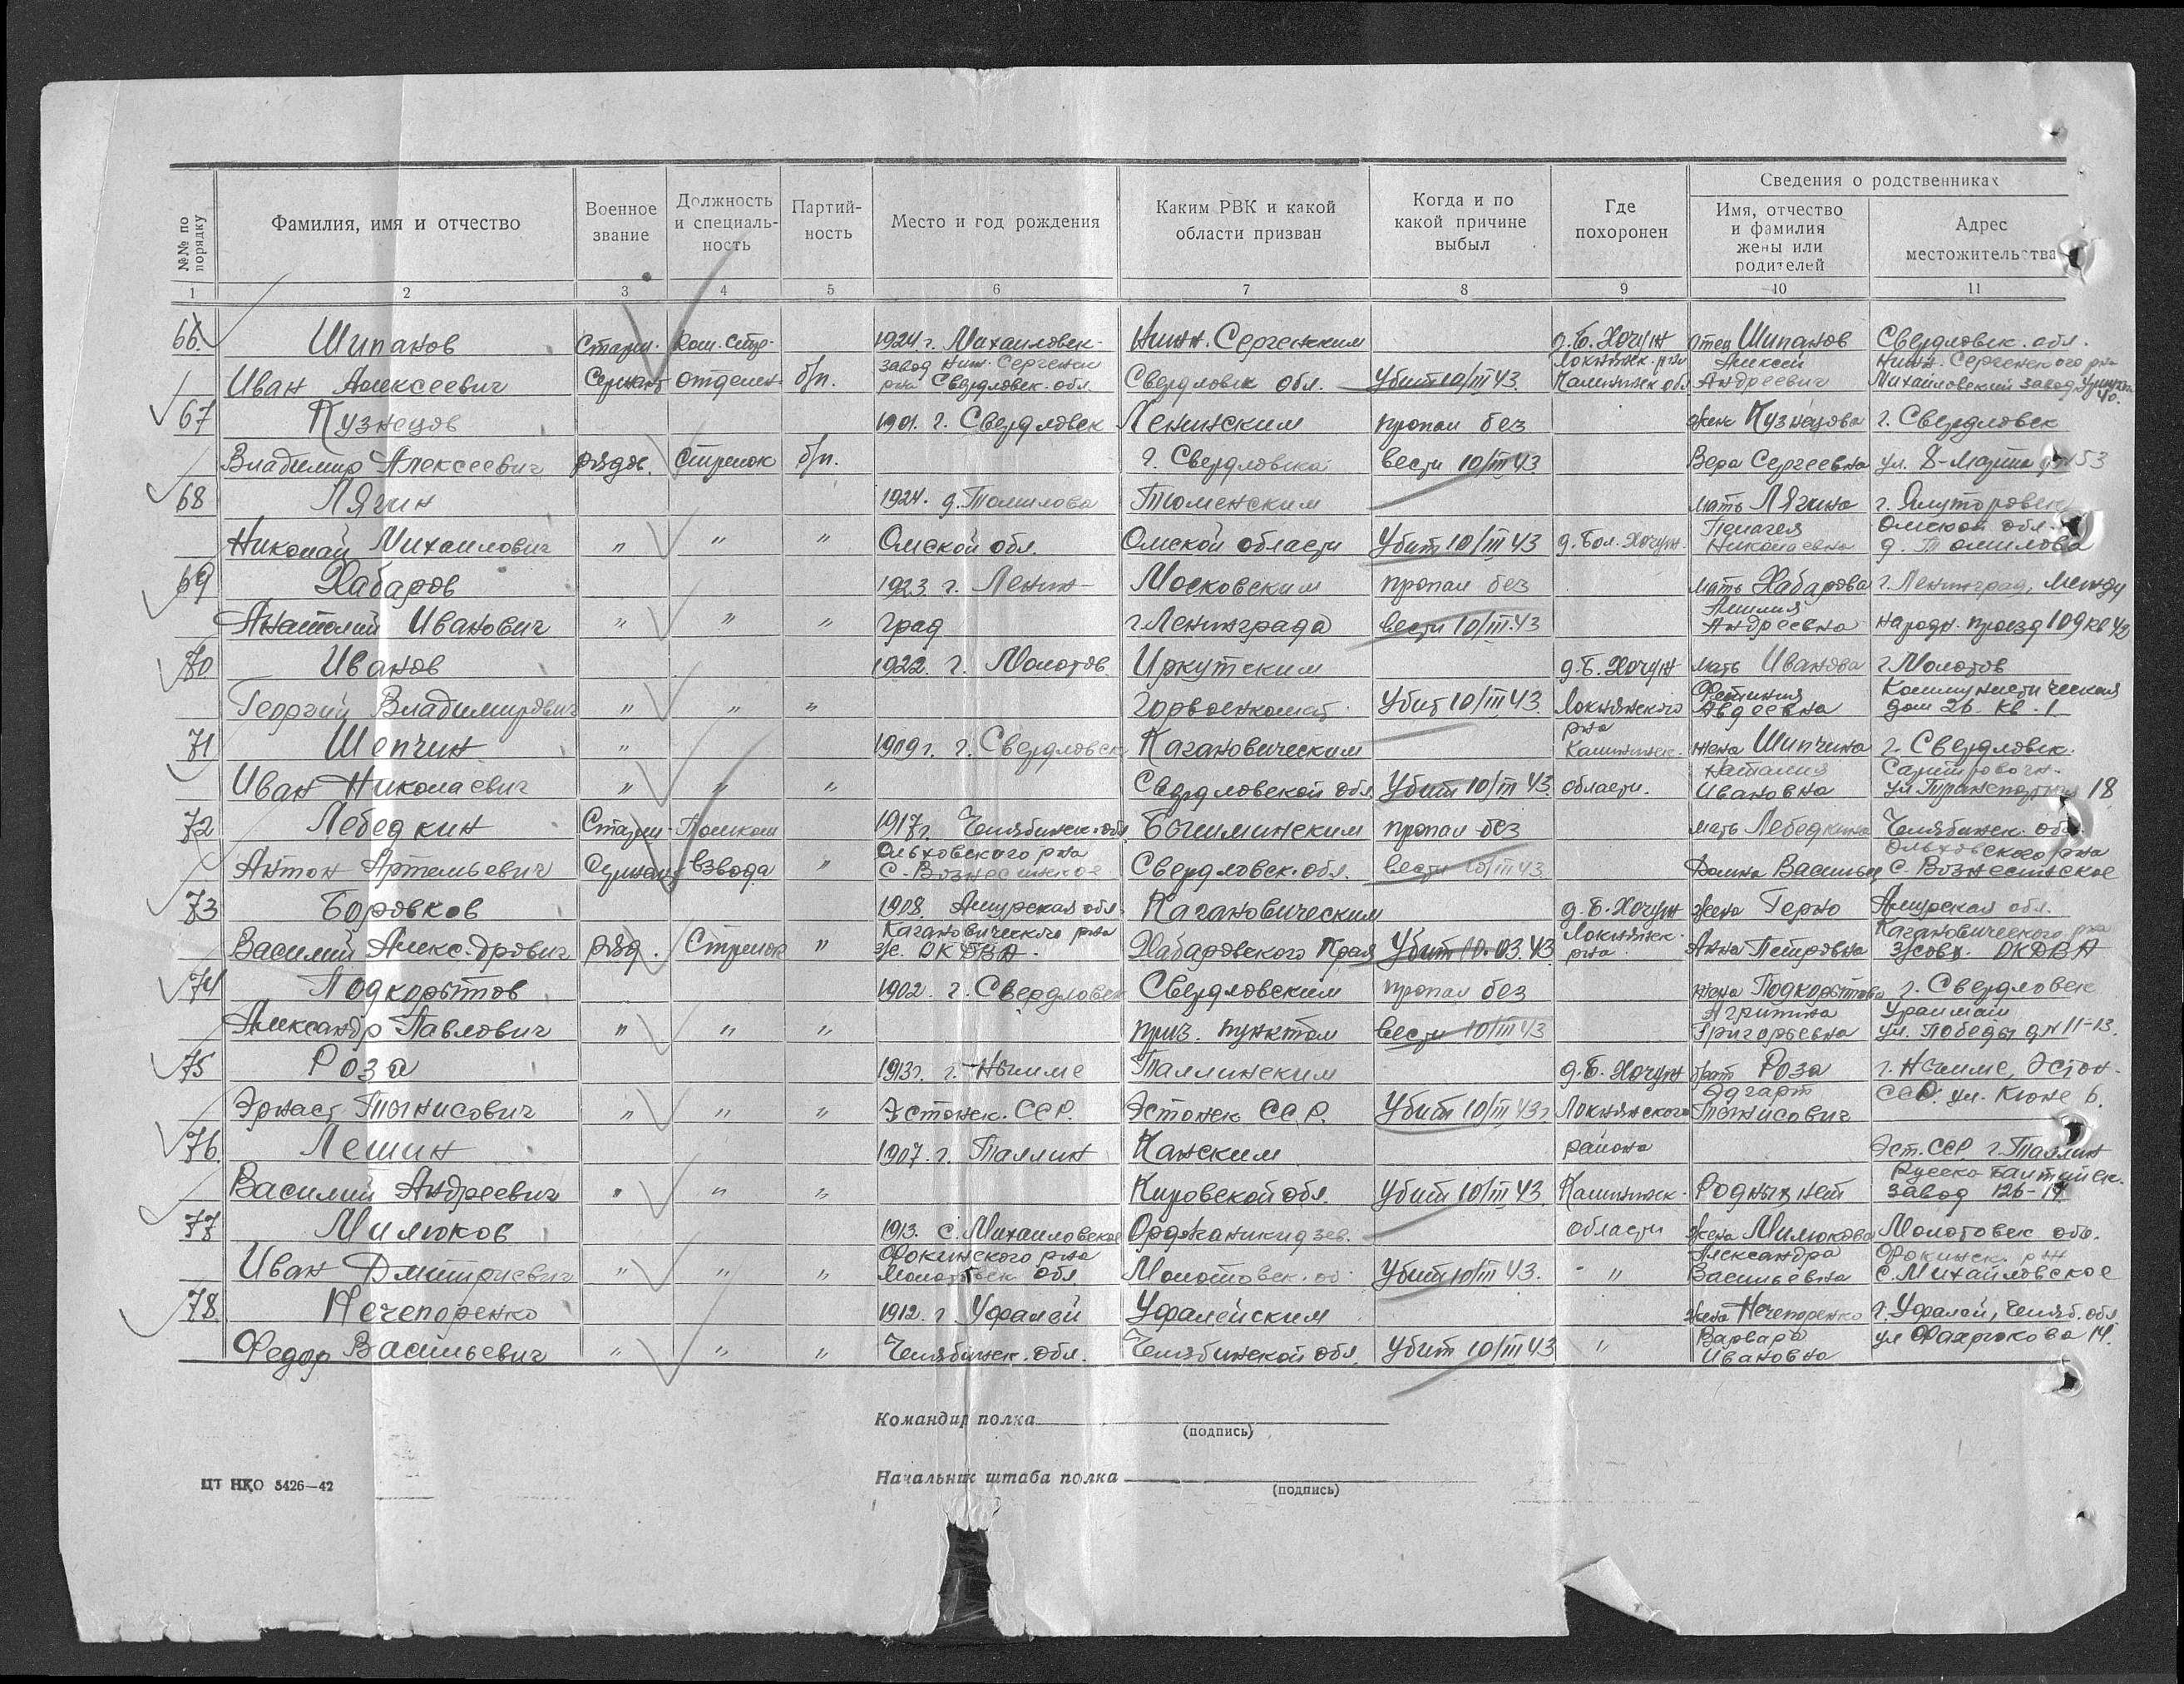 №№ по порядку
Фамилия, имя и отчество
Военное звание
Должность и специаль-ность
Партий-ность
Место и год рождения
Каким РВК и какой области призван
Когда и по какой причине выбыл
Где похоронен
Сведения о родственниках
Имя, отчество и фамилия жены или родителей
Адрес местожительства
1 2 3 4 5 6 7 8 9 10 11
66. Шипанов Старш. Ком. стр. 1924 г. Михайловск. Нижн. Сергенским д. Б. Хочун отец Шипанов Свердловск. обл.
завод Ниж. Сергенск Локнянск. р-на Алексей Нижн. Сергенского р-на
Иван Алексеевич Сержант отделен. б/п. р-на Свердловск. обл. Свердловск обл. Убит 10/III 43. Калининск обл. Андреевич Михайловский завод
67 Кузнецов 1901. г. Свердловск Ленинским пропал без жена Кузнецова г. Свердловск
Владимир Алексеевич рядов. Стрелок б/п. г. Свердловска вести 10/III 43 Вера Сергеевна ул. 8-Марта 153
68 Лягин 1924. д. Томилова Тюменским мать Лягина г. Ялуторовск
Пелагея Омской обл.
Николай Михайлович " " " Омской обл. Омской области Убит 10/III 43 д. Бол. Хочун. Николаевна д. Томилова
69 Хабаров 1923 г. Ленин- Московским пропал без мать Хабарова г. Ленинград, Между
Анатолий Иванович " " " град г. Ленинграда вести 10/III. 43 Андреевна народн. проезд 109 кв 42
70 Иванов 1922. г. Молотов. Иркутским д. Б. Хочун мать Иванова г. Молотов
Фетиния Коммунистическая
Георгий Владимирович " " " Горвоенкомат. Убит 10/III 43. Локнянского Авдеевна дом 26. кв. 1
р-на
71 Шепчин " 1909 г. г. Свердловск Кагановическим Калининск. жена Шипчина г. Свердловск.
Наталия Сартировочн.
Иван Николаевич " " " Свердловской обл Убит 10/III 43. области. Ивановна ул. Транспортник 18
72 Лебедкин Старш. Помком 1917 г. Челябинск. обл Богиминским пропал без мать Лебедкина Челябинск. обл.
Ольховского р-на Ольховского р-на
Антон Артемьевич Сержант взвода " С. Вознесенское Свердловск. обл. вести 10/III 43 Домна Васильев С. Вознесенское
73 Боровков 1908. Амурская обл. Кагановическим д. Б. Хочун жена Герно Амурская обл.
Кагановического р-на Локнянск. Кагановического р-на
Василий Алекс-дрович ряд. Стрелок " з/с. ОКДВА. Хабаровского Края Убит 10.03.43 р-на Анна Петровна з/совх. ОКДВА
74 Подкорытов 1902. г. Свердловск Свердловским пропал без жена Подкорытова г. Свердловск
Агрипина Уралмаш
Александр Павлович " " " приз. пунктом вести 10/III 43 Григорьевна ул. Победы д N 11-13.
75 Роза 1913 г. г. Нымме Таллинским д. Б. Хочун брат Роза г. Нымме, Эстон.
Эдгарт ССР. ул. Кюне 6.
Эрнаст Тынисович " " " Эстонск. ССР. Эстонск ССР. Убит 10/III 43 г. Локнянского Тынисович
76. Лешин 1907. г. Таллин Канским района Эст. ССР г. Таллин
Русско Балтийск.
Василий Андреевич " " " Кировской обл. Убит 10/III 43 Калининск. Родных нет завод 126-19
77 Милюков 1913. С. Михайловское Орджоникидзев. области жена Милюкова Молотовск обл.
Фокинского р-на Александра Фокинск. р-н
Иван Дмитриевич " " " Молотовск обл Молотовск. об. Убит 10/III 43. " Васильевна С. Михайловское
78. Нечепоренко 1912. г Уфалей Уфалейским жена Нечепоренко г. Уфалей, Челяб. обл
Варвара
Федор Васильевич " " " Челябинск. обл. Челябинской обл. Убит 10/III 43 " Ивановна
Командир полка
(подпись)
Начальник штаба полка
(подпись)
ЦТ НКО 5426—42